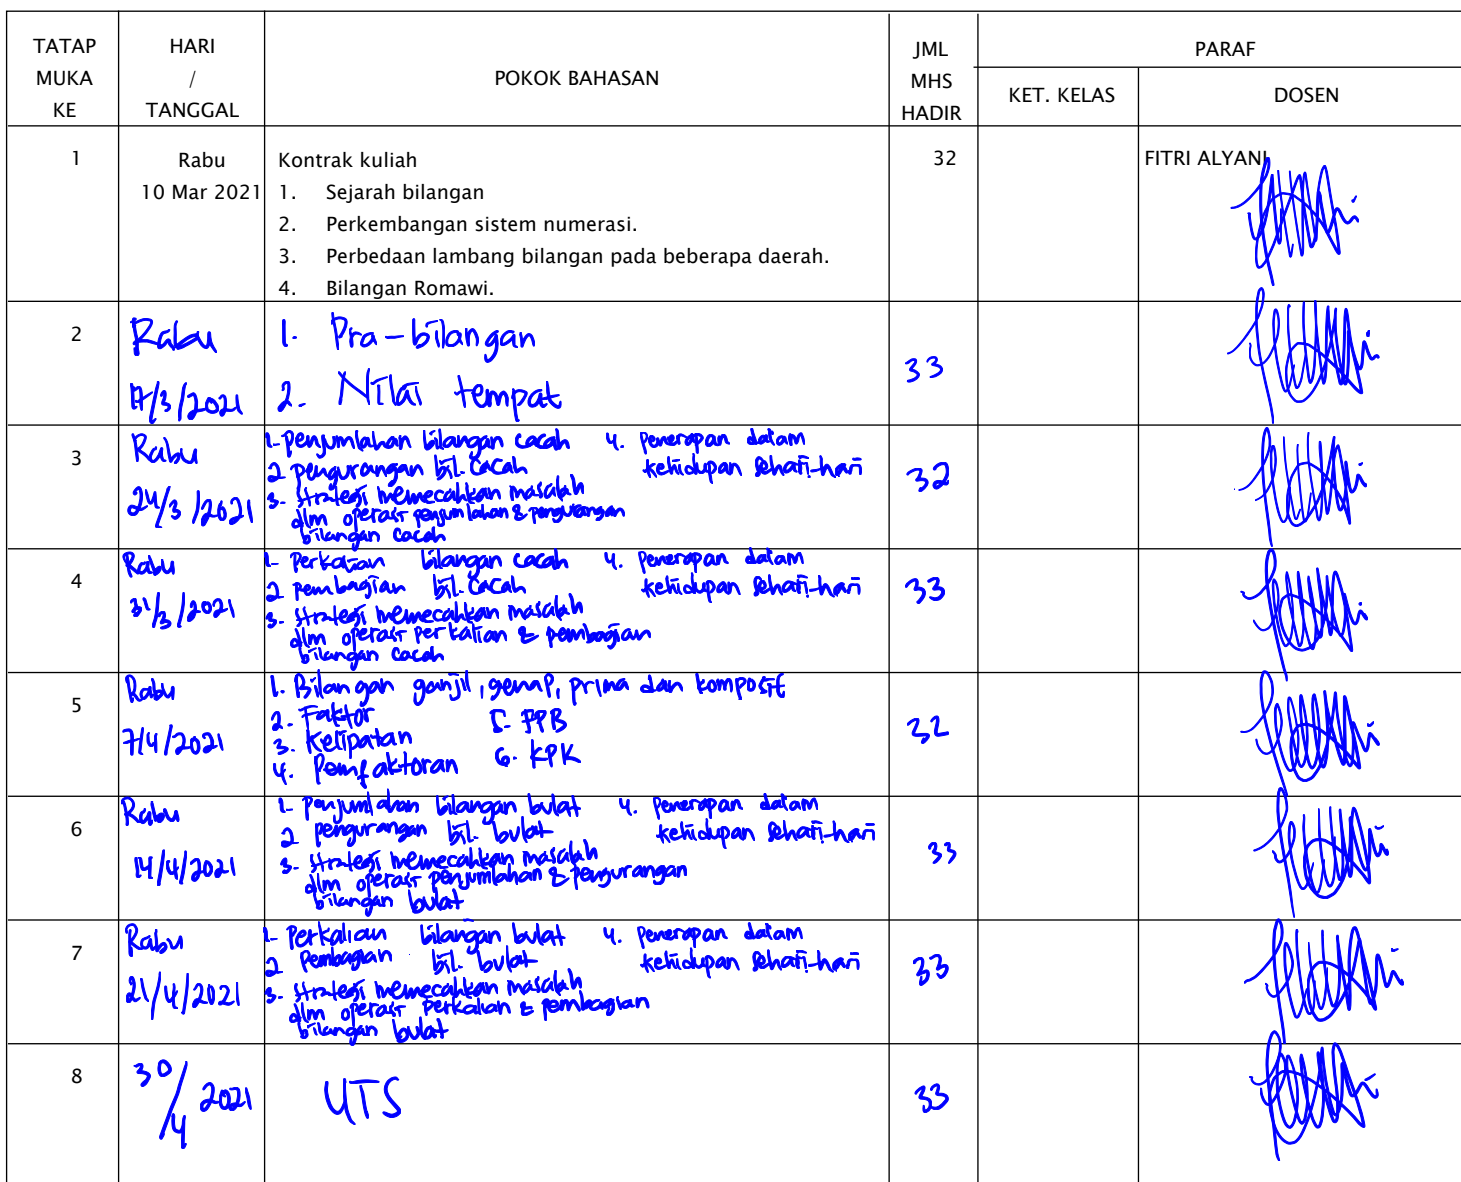 TATAP MUKA KE
HARI / TANGGAL
POKOK BAHASAN
JML MHS HADIR
PARAF
KET. KELAS
DOSEN
1
Rabu
10 Mar 2021
Kontrak kuliah
1. Sejarah bilangan
2. Perkembangan sistem numerasi.
3. Perbedaan lambang bilangan pada beberapa daerah.
4. Bilangan Romawi.
32
FITRI ALYANI
2
Rabu
17/3/2021
1. Pra-bilangan
2. Nilai tempat
33
3
Rabu
24/3/2021
1. Penjumlahan bilangan cacah
2 pengurangan bil. cacah
3. Strategi memecahkan masalah
dlm operasi penjumlahan & pengurangan
bilangan cacah
4. Penerapan dalam
kehidupan sehari-hari
32
4
Rabu
31/3/2021
1. Perkalian bilangan cacah
2 Pembagian bil. cacah
3. Strategi memecahkan masalah
dlm operasi perkalian & pembagian
bilangan cacah
4. Penerapan dalam
kehidupan sehari-hari
33
5
Rabu
7/4/2021
1. Bilangan ganjil, genap, prima dan komposit
2. Faktor
3. Kelipatan
4. Pemfaktoran
5. FPB
6. KPK
32
6
Rabu
14/4/2021
1. Penjumlahan bilangan bulat
2 pengurangan bil. bulat
3. Strategi memecahkan masalah
dlm operasi penjumlahan & pengurangan
bilangan bulat
4. Penerapan dalam
kehidupan sehari-hari
33
7
Rabu
21/4/2021
1. Perkalian bilangan bulat
2 Pembagian bil. bulat
3. Strategi memecahkan masalah
dlm operasi perkalian & pembagian
bilangan bulat
4. Penerapan dalam
kehidupan sehari-hari
33
8
30/4 2021
UTS
33